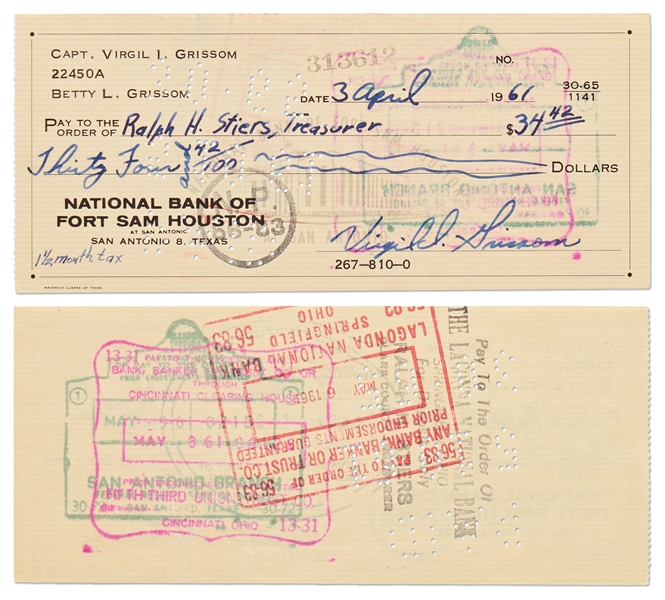 CAPT. VIRGIL I. GRISSOM
22450A
BETTY L. GRISSOM
313612
NO.
DATE 3 April 1961
30-65
1141
PAY TO THE
ORDER OF Ralph H. Stiers, Treasurer $34 42
Thirty Four and 42/100 DOLLARS
NATIONAL BANK OF
FORT SAM HOUSTON
AT SAN ANTONIO
SAN ANTONIO 8, TEXAS
N.P.
56-83
SAN ANTONIO BRANCH
Virgil I. Grissom
267-810-0
1½ month tax
MAVERICK CLARKE OF TEXAS
13-31
BANK, BANKER
OR
THROUGH
CINCINNATI CLEARING HOUSE
MAY
MAY 8 61
SAN ANTONIO BRANCH
FIFTH THIRD UNION
CO.
SAN ANTONIO, TEXAS
30-72
CINCINNATI OHIO 13-31
PAY TO THE ORDER OF
ANY BANK, BANKER OR TRUST CO.
PRIOR ENDORSEMENTS GUARANTEED
56-83
MAY 6 1961
LAGONDA NATIONAL BANK
56-83 SPRINGFIELD 56-83
OHIO
Pay To The Order Of
THE LAGONDA NATIONAL BANK
RALPH
STIERS